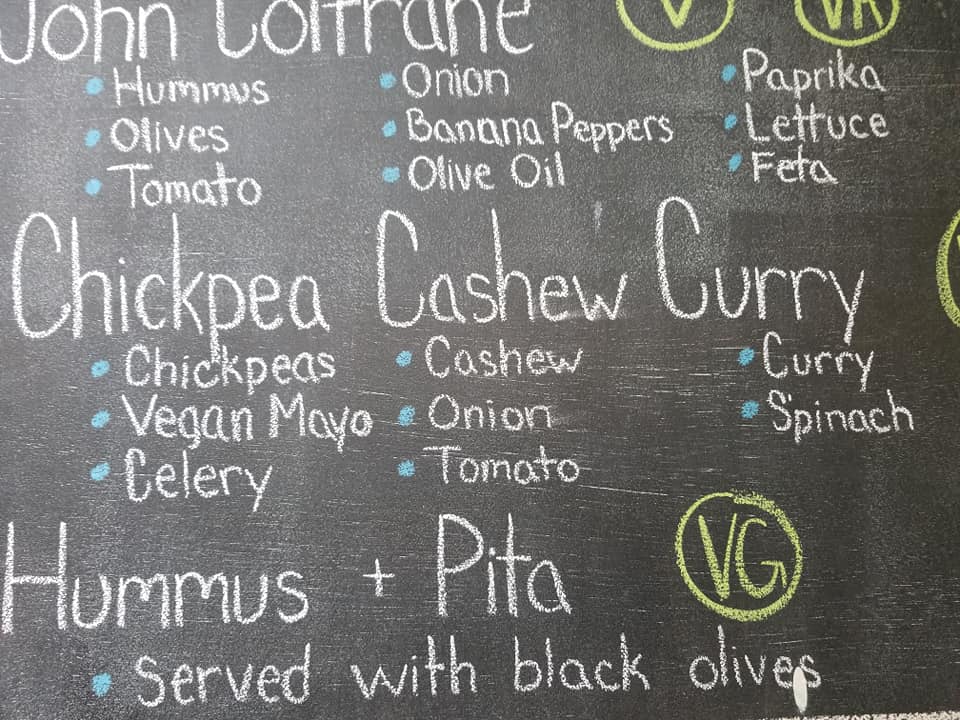 John Coltrane V VR
Hummus Onion Paprika
Olives Banana Peppers Lettuce
Tomato Olive Oil Feta
Chickpea Cashew Curry
Chickpeas Cashew Curry
Vegan Mayo Onion Spinach
Celery Tomato
Hummus + Pita VG
Served with black olives